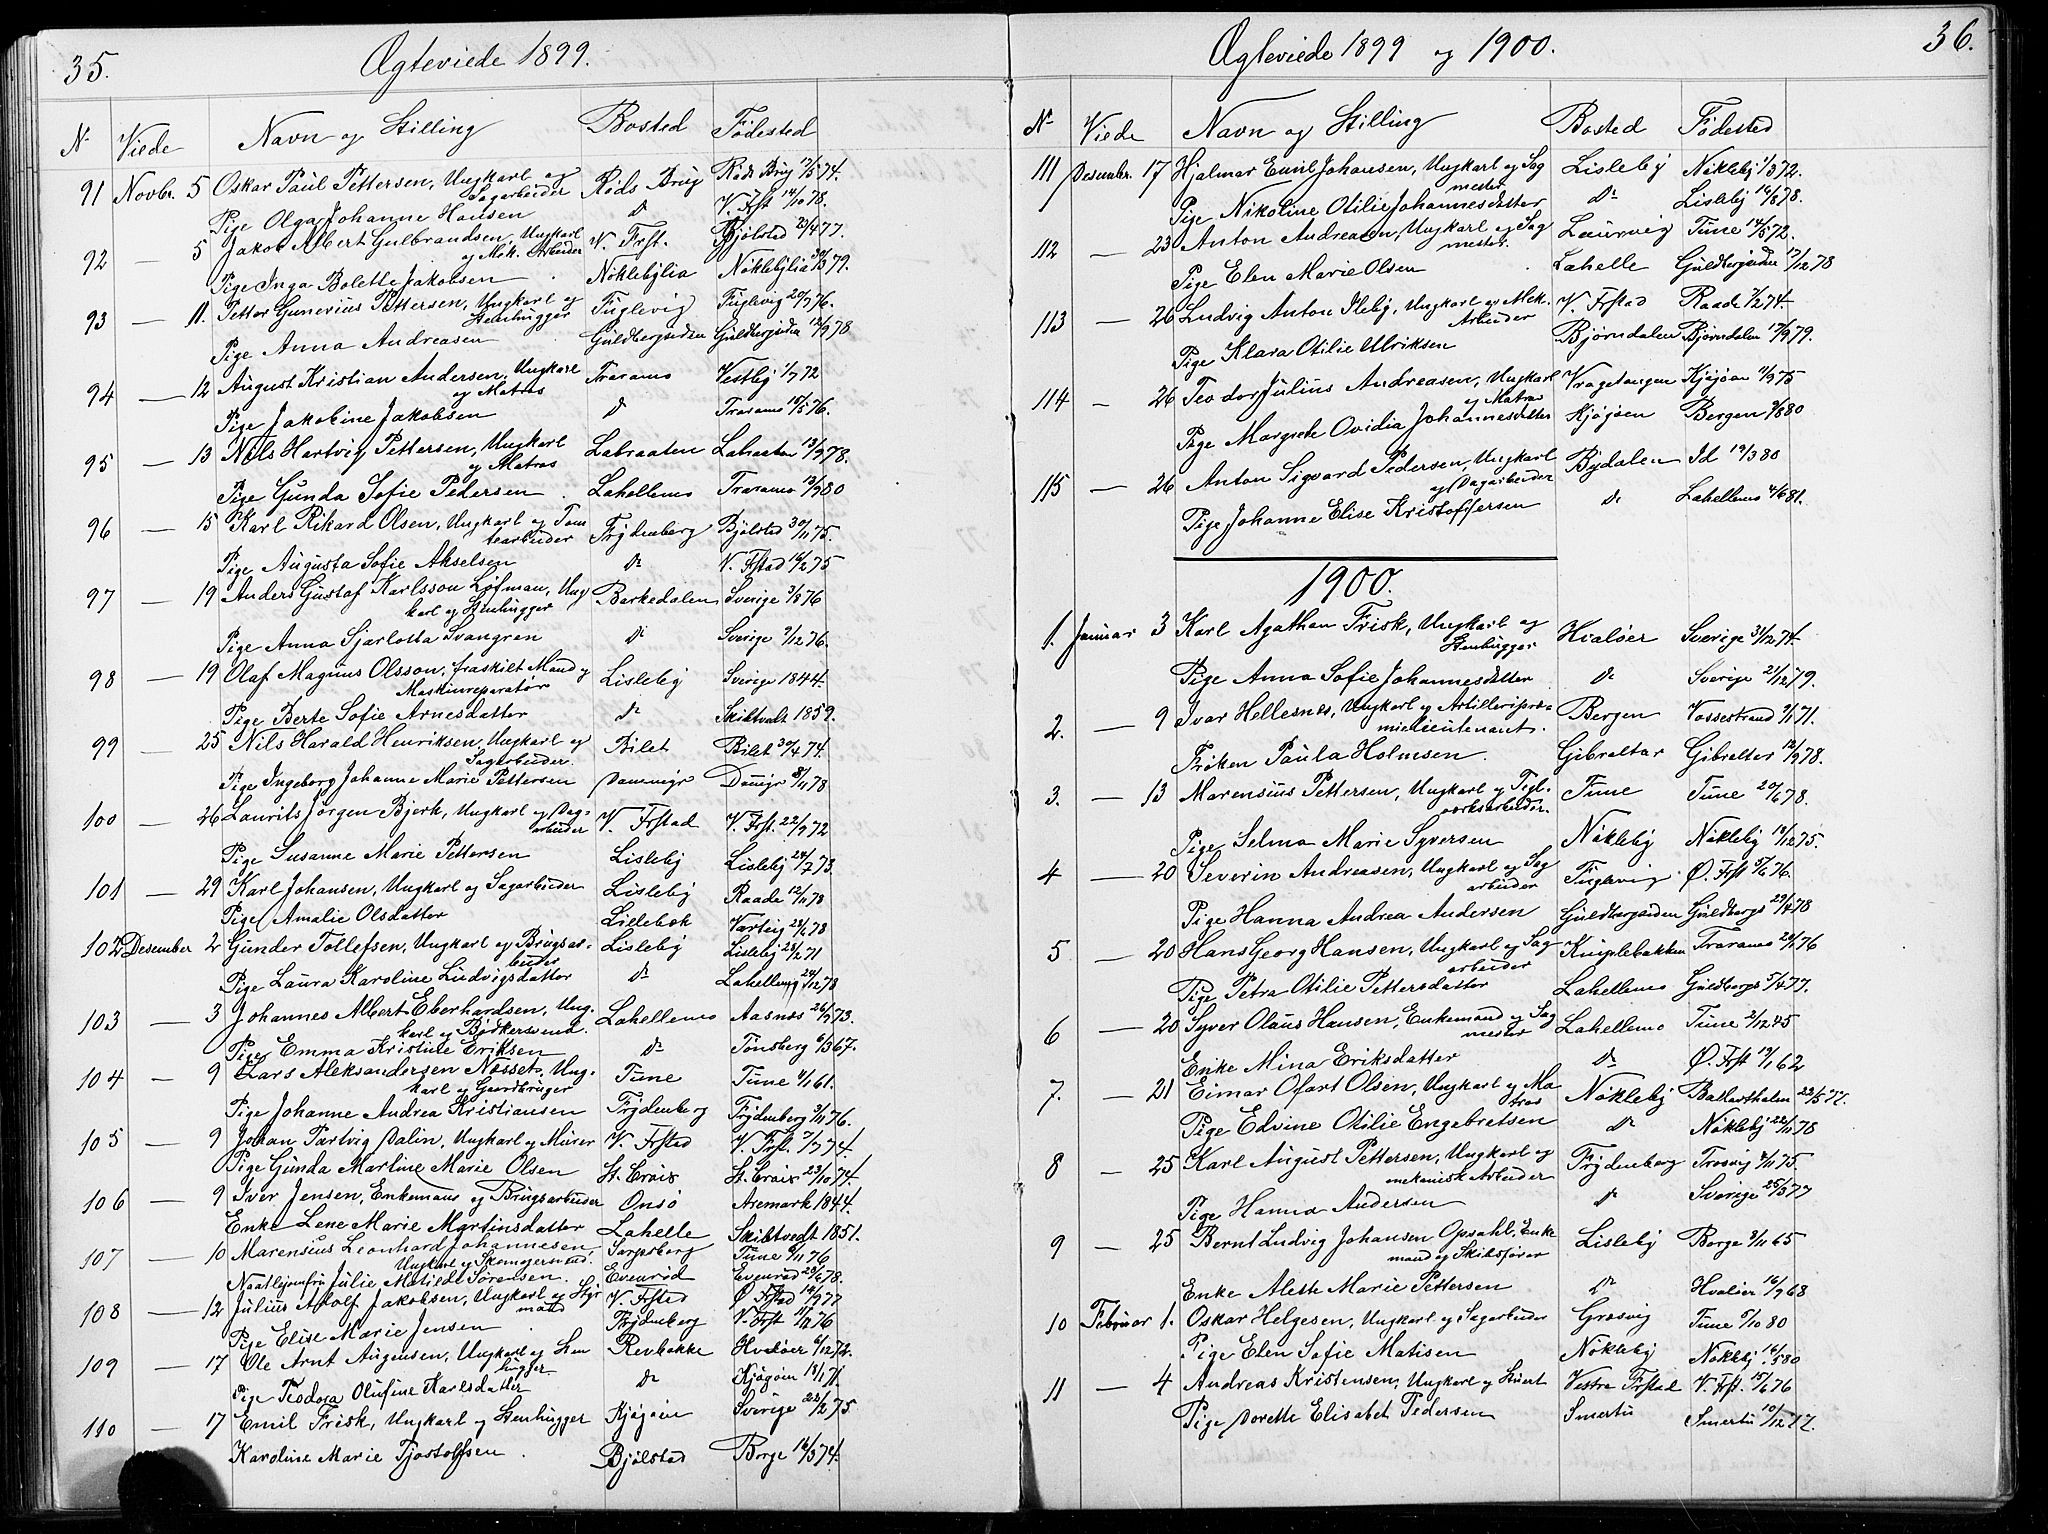 35.
Ægteviede 1899.
N. Viede Navn og Stilling Bosted Fødested
91 Novbr. 5 Oskar Paul Pettersen, Ungkarl og Sagarbeider Røds Brug Røds Brug 74.
Pige Olga Johanne Hansen do V. Frst 14/10 78.
92 — 5 Jakob Albert Gulbrandsen, Ungkarl og Mek. Arbeider V. Frst. Bjølstad 4 77.
Pige Inga Bolette Jakobsen Nøklebylia Nøklebylia 79.
93 — 11. Petter Gunerius Pettersen, Ungkarl og Stenhugger Fuglevig Fuglevig 76.
Pige Anna Andreasen Guldbergsiden Guldbergsidin 12/9 78
94 — 12 August Kristian Andersen, Ungkarl og Matros Traramo Vestby 1/7 72
Pige Jakobine Jakobsen do Traramo 5 76.
95 — 13 Nils Hartvig Pettersen, Ungkarl og Matros Labraaten Labraaten 78.
Pige Gunda Sofie Pedersen Lahellemo Traramo 80
96 — 15 Karl Rikard Olsen, Ungkarl og Tomtearbeider Frydenberg Bjølstad 30/11 75.
Pige Augusta Sofie Akselsen do V. Fstad 16/2 75
97 — 19 Anders Gustaf Karlsson Løfman, Ungkarl og Stenhugger Barkedalen Sverige 3/8 76
Pige Anna Sjarlotta Svangren do Sverige 9/12 76.
98 — 19 Olaf Magnus Olsson, fraskilt Mand og Maskinreparatør Lisleby Sverige 1844.
Pige Berte Sofie Arnesdatter do Skibtvedt 1859.
99 — 25 Nils Harald Henriksen, Ungkarl og Sagarbeider. Bilet Bilet 30/4 74.
Pige Ingeborg Johanne Marie Pettersen Dammyr Damyr 78
100 — 26 Laurits Jørgen Bjerk, Ungkarl og Dagarbeider V. Frstad V. Frst. 22/9 72
Pige Susanne Marie Pettersen Lisleby Lisleby 24/7 73.
101 — 29 Karl Johansen, Ungkarl og Sagarbeider Lisleby Raade 12/11 78
Pige Amalie Olsdatter Lillebæk Varteig 78
102 Desember 2 Gunder Tollefsen, Ungkarl og Brugsarbeider Lisleby Lisleby 71
Pige Laura Karoline Ludvigsdatter do Lahellemo 24/12 78
103 — 3 Johannes Albert Eberhardsen, Ungkarl og Bødkersvend. Lahellemo Aasnæs 26/9 73.
Pige Emma Kristine Eriksen do Tønsberg 6/3 67.
104 — 9 Lars Aleksandersen Næsset, Ungkarl og Gaardbruger Tune Tune 61.
Pige Johanne Andrea Kristiansen Frydenberg Frydenberg 3/11 76.
105 — 9 Johan Partvig Dalin, Ungkarl og Murer V. Frstad V. Frst. 7/7 74.
Pige Gunda Martine Marie Olsen St. Croix St. Croix 23/10 74.
106 — 9 Iver Jensen, Enkemand og Brugsarbeider Onsø Aremark 1844.
Enke Lene Marie Martinsdatter Lahelle Skibtvedt 1851.
107 — 10 Marensius Leonhard Johannesen, Ungkarl og Skomagersvend. Sarpsborg Tune 76
Naatlejomfru Julie Matilde Sørensen. Evenrød Evenrød 78.
108 — 12 Julius Adolf Jakobsen, Ungkarl og Styrmand V. Fstad Ø. Fstad 14/9 77
Pige Elise Marie Jensen Frydenberg V. Frst 76
109 — 17 Ole Arnt Augensen, Ungkarl og Stenhugger Revbakke Hvaløer 6/12 72.
Pige Teodora Olufine Karlsdatter do Kjøgøin 71.
110 — 17 Emil Frisk, Ungkarl og Stenhugger Kjøgøin Sverige 22/2 75
Karoline Marie Tjostolfsen Bjølstad Borge 16/3 74.
36.
Ægteviede 1899 og 1900.
No. Viede Navn og Stilling Bosted Fødested
111 Desember. 17 Hjalmar Emil Johansen, Ungkarl og Sagmester Lisleby Nøkleby 1/3 72.
Pige Nikoline Otilie Johannesdatter do Lisleby 14/8 78.
112 — 23 Anton Andreasen, Ungkarl og Sagmester. Laurvig Tune 14/5 72.
Pige Elen Marie Olsen Lahelle Guldbergsiden 17/12 78
113 — 26 Ludvig Anton Ileby, Ungkarl og Mek. Arbeider V. Frstad Raade 7/2 74.
Pige Klara Otilie Ulriksen Bjørndalen Bjørndalen 17/9 79.
114 — 26 Teodor Julius Andreasen, Ungkarl og Matros Vragetangen Kjøjøen 75
Pige Margrete Ovidia Johannesdatter Kjøgøen Bergen 80
115 — 26 Anton Sigvard Pedersen, Ungkarl og Dagarbeider Bydalen Id 19/3 80
Pige Johanne Elise Kristoffersen do Lahellemo 4/6 81.
1900.
1. Januar 3 Karl Agathan Frisk, Ungkarl og Stenhugger Hvaløer Sverige 31/12 74.
Pige Anna Sofie Johannesdatter do Sverige 21/12 79.
2. — 9 Ivar Hellesnes, Ungkarl og Artilleripremielieutenant. Bergen Vossestrand 71.
Frøken Paula Holmsen Gibraltar Gibralter 12/9 78.
3. — 13 Marensius Pettersen, Ungkarl og Teglværksarbeider. Tune Tune 20/6 78.
Pige Selma Marie Syversen Nøkleby Nøkleby 12 75.
4 — 20 Severin Andreasen, Ungkarl og Sagarbeider Fuglevig Ø. Frst 5/6 76.
Pige Hanna Andrea Andersen Guldbergsiden Guldbergs 29/4 78
5 — 20 Hans Georg Hansen, Ungkarl og Sagarbeider Kniplebakken Traramo 76
Pige Petra Otilie Pettersdatter Lahellemo Guldbergs 5/4 77.
6 — 20 Syver Olaus Hansen, Enkemand og Sagmester Lahellemo Tune 2/12 45
Enke Mina Eriksdatter do Ø. Frst 19/1 62
7. — 21 Eimar Ofart Olsen, Ungkarl og Matros Nøkleby Bakkerthalen 22/5 77.
Pige Edvine Otilie Engebretsen do Nøkleby 22/11 78
8 — 25 Karl August Pettersen, Ungkarl og mekanisk Arbeider Frydenberg Trosvig 75.
Pige Hanna Andersen do Sverige 25/3 77
9 — 25 Bernt Ludvig Johansen Opsahl, Enkemand og Skibsfører Lisleby Borge 65
Enke Alette Marie Pettersen do Hvaløer 16/9 68
10 Februar 1. Oskar Helgesen, Ungkarl og Sagarbeider Græsvig Tune 5/10 80
Pige Elen Sofie Matisen Nøkleby Nøkleby 16/5 80
11 — 4 Andreas Kristensen, Ungkarl og Stuert Vestre Frstad V. Frst. 15/6 76
Pige Dorette Elisabet Pedersen Smertu Smertu 10/12 77.